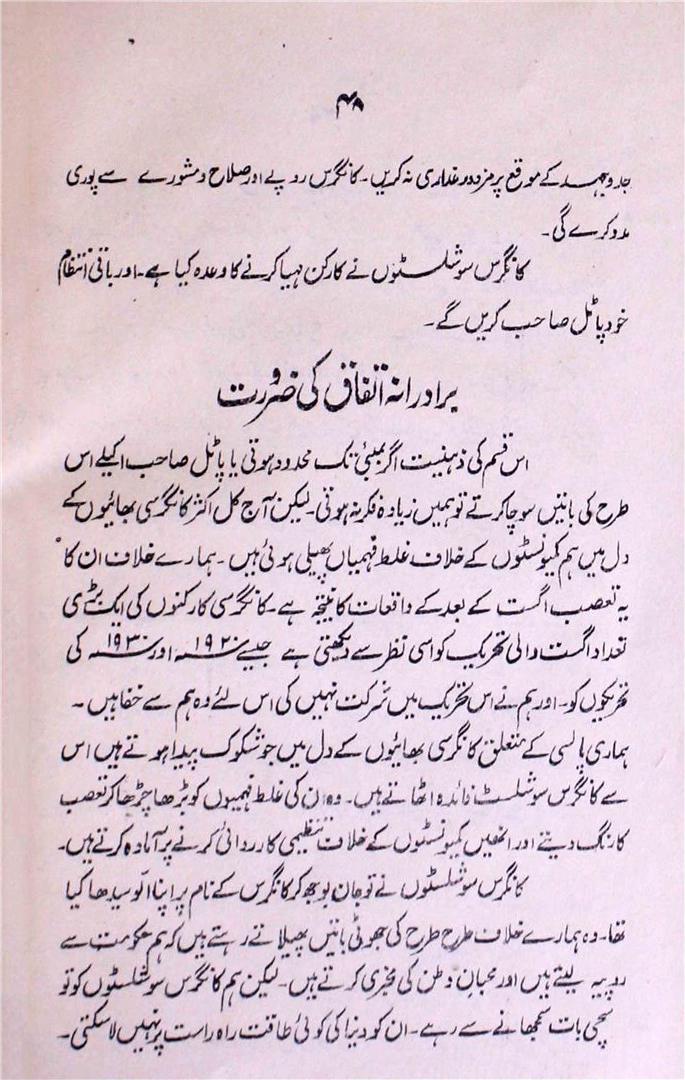 ۴۸
جدوجہد کے موقع پر مزدور غداری نہ کریں۔ کانگرس روپے اور صلاح و مشورے سے پوری
مدد کرے گی۔
کانگرس سوشلسٹوں نے کارکن مہیا کرنے کا وعدہ کیا ہے۔ اور باقی انتظام
خود پاٹل صاحب کریں گے۔
برادرانہ اتفاق کی ضرورت
اس قسم کی ذہنیت اگر بمبئی تک محدود ہوتی یا پاٹل صاحب اکیلے اس
طرح کی باتیں سوچا کرتے تو ہمیں زیادہ فکر نہ ہوتی۔ لیکن آج کل اکثر کانگرسی بھائیوں کے
دل میں ہم کمیونسٹوں کے خلاف غلط فہمیاں پھیلی ہوئی ہیں۔ ہمارے خلاف ان کا
یہ تعصب اگست کے بعد کے واقعات کا نتیجہ ہے۔ کانگرسی کارکنوں کی ایک بڑی
تعداد اگست والی تحریک کو اسی نظر سے دیکھتی ہے جیسے ۱۹۲۰ء اور ۱۹۳۰ء کی
تحریکوں کو۔ اور ہم نے اس تحریک میں شرکت نہیں کی اس لئے وہ ہم سے خفا ہیں۔
ہماری پالسی کے متعلق کانگرسی بھائیوں کے دل میں جو شکوک پیدا ہوتے ہیں اس
سے کانگرس سوشلسٹ فائدہ اٹھاتے ہیں۔ وہ ان کی غلط فہمیوں کو بڑھا چڑھا کر تعصب
کا رنگ دیتے اور انھیں کمیونسٹوں کے خلاف تنظیمی کارروائی کرنے پر آمادہ کرتے ہیں۔
کانگرس سوشلسٹوں نے تو جان بوجھ کر کانگرس کے نام پر اپنا الّو سیدھا کیا
تھا۔ وہ ہمارے خلاف طرح طرح کی جھوٹی باتیں پھیلاتے رہتے ہیں کہ ہم حکومت سے
روپیہ لیتے ہیں اور محبان وطن کی مخبری کرتے ہیں۔ لیکن ہم کانگرس سوشلسٹوں کو تو
سچی بات سمجھانے سے رہے۔ ان کو دنیا کی کوئی طاقت راہ راست پر نہیں لا سکتی۔